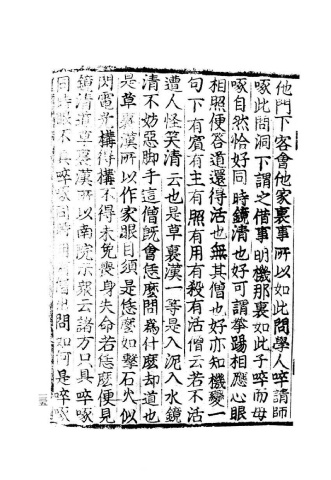 他門下客會他家裏事所以如此問學人啐請師
啄此問洞下謂之借事明機那裏如此子啐而母
啄自然恰好同時鏡清也好可謂拳踢相應心眼
相照便答道還得活也無其僧也好亦知機變一
句下有賓有主有照有用有殺有活僧云若不活
遭人怪笑清云也是草裏漢一等是入泥入水鏡
清不妨惡脚手這僧旣會恁麽問爲什麽却道也
是草裏漢所以作家眼目須是恁麽如擊石火似
閃電光構得構不得未免喪身失命若恁麽便見
鏡清道草裏漢所以南院示衆云諸方只具啐啄
同時眼不具啐啄同時用問如何是啐啄